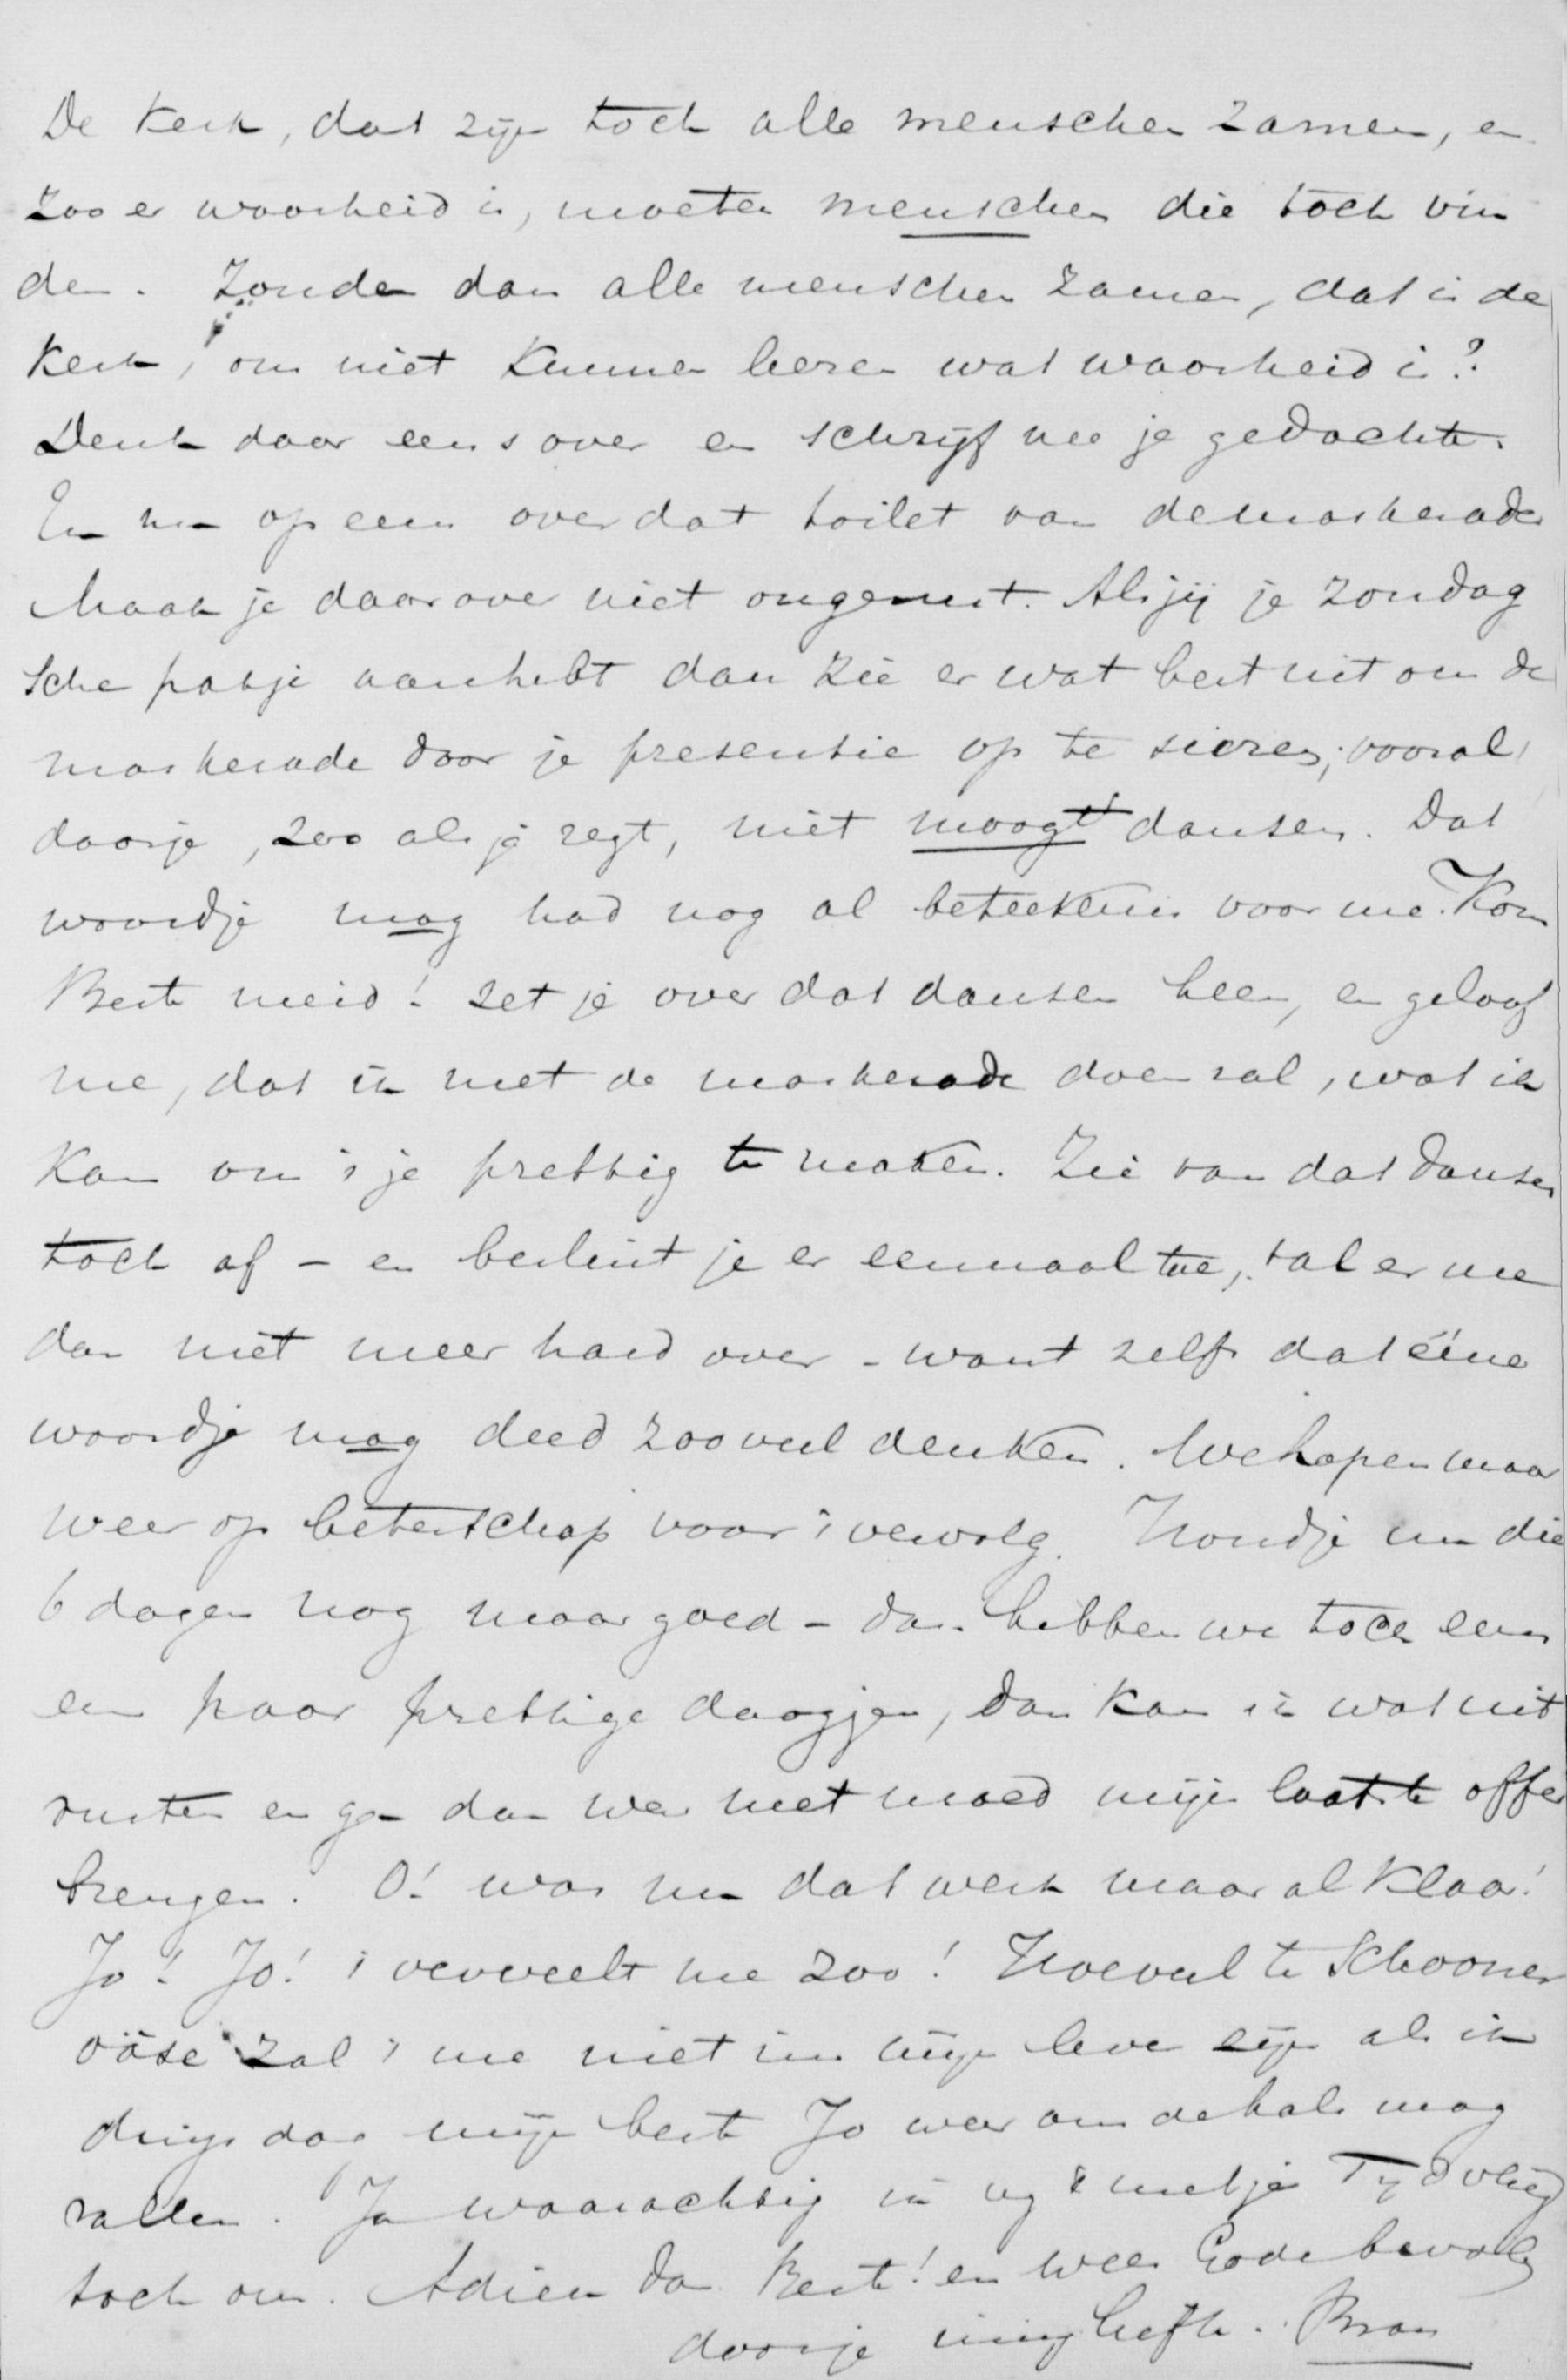 De Kerk, dat zijn toch alle menschen zamen, en
zoo er waarheid is, moeten menschen die toch vin
den. Zouden dan alle menschen zamen, dat is de
Kerk, ons niet kunnen leeren wat waarheid is?
Denk daar eens over en schrijf me je gedachte.
En nu op eens over dat toilet van de maskerade
Maak je daarover niet ongerust. Als jij je zondag
sche pakje aanhebt dan zie er wat best uit om de
maskerade door je presentie op te sieren; vooral
daar je, zoo als je zegt, niet moogt dansen. Dat
woordje mag had nog al beteekenis voor me. Kom
Beste meid! zet je over dat dansen heen, en geloof
me, dat ik met de maskerade doen zal, wat ik
kan om 't je prettig te maken. Zie van dat dansen
toch af - en besluit je er eenmaal toe, val er me
dan niet meer hard over - want zelfs dat ééne
woordje mag deed zooveel denken. We hopen maar
weer op beterschap voor 't vervolg. Houd je nu die
6 dagen nog maar goed - dan hebben we toch eens
een paar prettige daagjen, dan kan ik wat uit
rusten en ga dan weer met moed mijn laatste offer
brengen. O! was nu dat werk maar al klaar!
Jo! Jo! 't verveelt me zoo! Hoeveel te schooner
oäse zal 't me niet in mijn leven zijn als ik
dingsdag mijn beste Jo weer om de hals mag
vallen. Ja waarachtig Tijd vliegt
toch om. Adieu dan Beste! en weer Gode bevolen
door je innig liefh. Bram